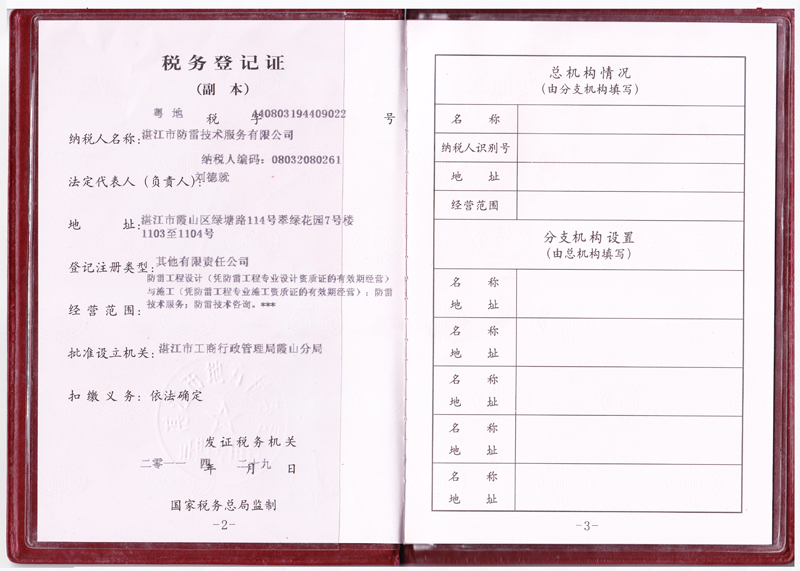 税务登记证
(副 本)
粤 地 税 字 440803194409022 号
纳税人名称:湛江市防雷技术服务有限公司
纳税人编码:08032080261
法定代表人(负责人):刘德就
地 址:湛江市霞山区绿塘路114号翠绿花园7号楼
1103至1104号
登记注册类型:其他有限责任公司
防雷工程设计(凭防雷工程专业设计资质证的有效期经营)
与施工(凭防雷工程专业施工资质证的有效期经营);防雷
经营范围:技术服务;防雷技术咨询。***
批准设立机关:湛江市工商行政管理局霞山分局
扣缴义务:依法确定
发证税务机关
二零一一 年 四 月 二十九 日
国家税务总局监制
-2-
总机构情况
(由分支机构填写)
名 称
纳税人识别号
地 址
经营范围
分支机构设置
(由总机构填写)
名 称
地 址
名 称
地 址
名 称
地 址
名 称
地 址
名 称
地 址
-3-